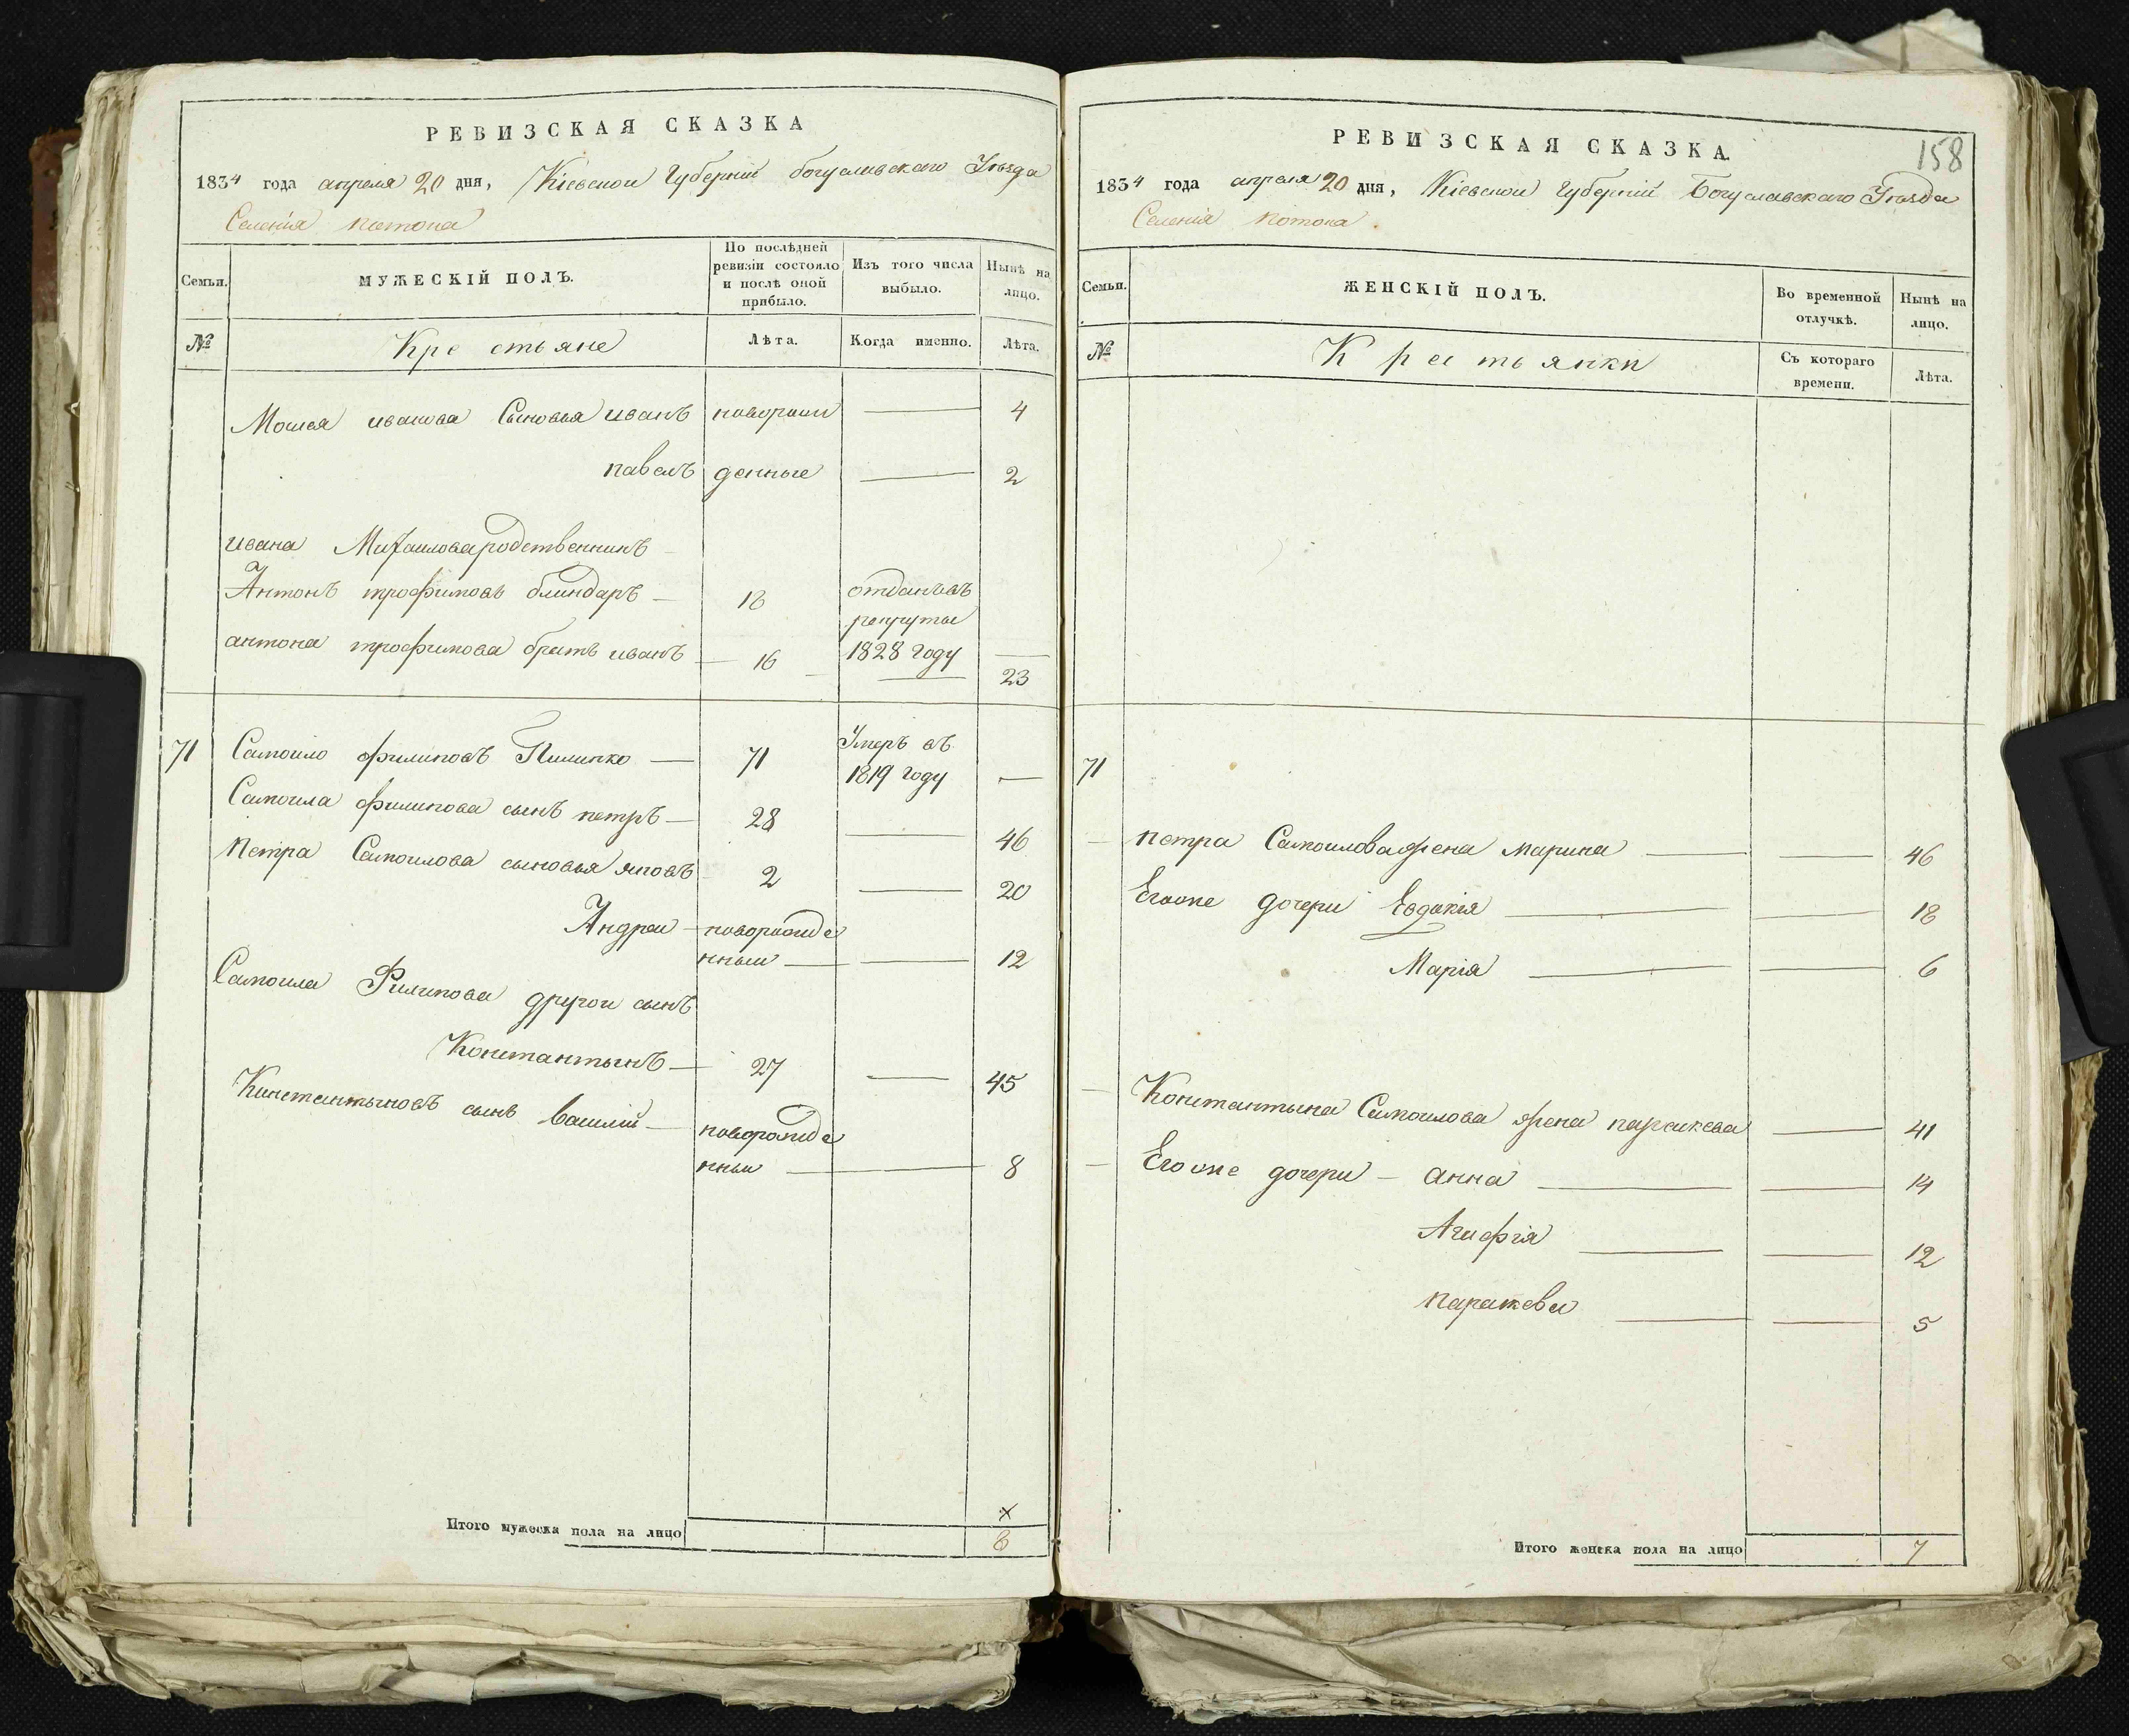 РЕВИЗСКАЯ СКАЗКА
1834 года апреля 20 дня, Кіевской Губерніи богуславскаго Уѣзда
Селенія потока
Семьи.
МУЖЕСКІЙ ПОЛЪ.
По послѣдней ревизіи состояло и послѣ оной прибыло.
Изъ того числа выбыло.
Нынѣ на лицо.
№
Крестьяне
Лѣта.
Когда именно.
Лѣта.
Мосея иванова Сыновья иванъ новорож — 4
павелъ денные — 2
ивана Михаилова родственникъ
Антонъ трофимовъ блиндаръ — 18 отданъ въ
рекруты
антона трофимова братъ иванъ — 16 1828 году — 23
71 Самоило филиповъ Пилипко — 71 Умеръ въ
1819 году —
Самоила филипова сынъ петръ — 28 — 46
петра Самоилова сыновья яковъ 2 — 20
Андреи — новорожде
нныи — 12
Самоила Филипова другои сынъ
Константынъ — 27 — 45
Константыновъ сынъ василій — новорожде
нныи — 8
Итого мужеска пола на лицо
х
8
РЕВИЗСКАЯ СКАЗКА.
158
1834 года апреля 20 дня, Кіевской Губерніи Богуславскаго Уѣзда
Селенія потока.
Семьи.
ЖЕНСКІЙ ПОЛЪ.
Во временной отлучкѣ.
Нынѣ на лицо.
№
Крестьянки
Съ котораго времени.
Лѣта.
71
петра Самоилова жена марина — 46
Егоже дочери Евдокія — 18
Марія — 6
Константына Самоилова жена параскева — 41
Егоже дочери — анна — 14
Агафія — 12
параскева — 5
Итого женска пола на лицо 7